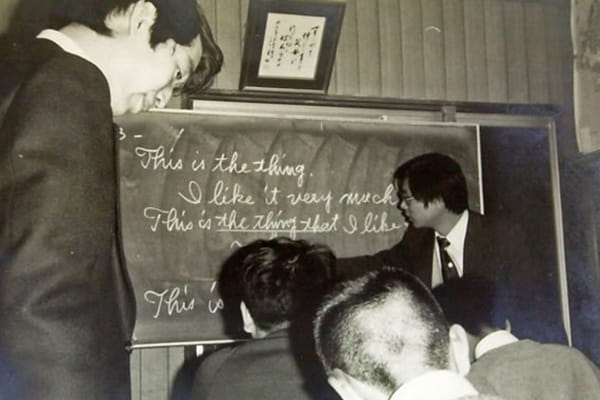 3-
This is the thing.
I like it very much
This is the thing that I like
This is